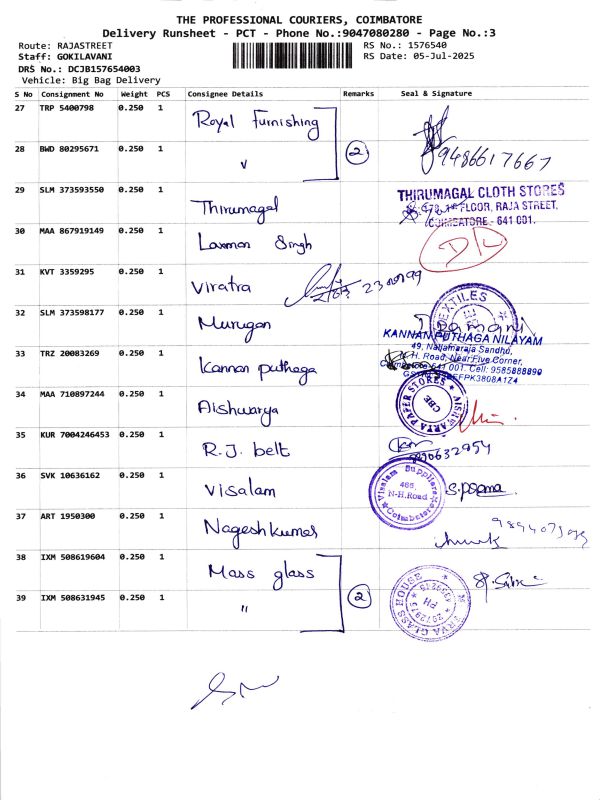 THE PROFESSIONAL COURIERS, COIMBATORE
Delivery Runsheet - PCT - Phone No.:9047080280 - Page No.:3
Route: RAJASTREET
RS No.: 1576540
Staff: GOKILAVANI
RS Date: 05-Jul-2025
DRS No.: DCJB157654003
Vehicle: Big Bag Delivery
S No Consignment No Weight PCS Consignee Details Remarks Seal & Signature
27 TRP 5400798 0.250 1 Royal Furnishing
28 BWD 80295671 0.250 1 " 2 9486617667
29 SLM 373593550 0.250 1 Thirumagal
THIRUMAGAL CLOTH STORES
FLOOR, RAJA STREET,
COIMBATORE - 641 001.
30 MAA 867919149 0.250 1 Laxman Singh D/L
31 KVT 3359295 0.250 1 Viratra
32 SLM 373598177 0.250 1 Murugan
TEXTILES
33 TRZ 20083269 0.250 1 Kannan puthaga
KANNAN PUTHAGA NILAYAM
49, Nallamaraja Sandhu,
N.H. Road, Near Five Corner,
Coimbatore-641 001. Cell: 9585888890
34 MAA 710897244 0.250 1 Aishwarya
PAPER STORES
CBE
35 KUR 7004246453 0.250 1 R.J. belt
36 SVK 10636162 0.250 1 Visalam
Visalam Suppliers
466,
N-H.Road
Coimbatore
37 ART 1950300 0.250 1 Nageshkumar
38 IXM 508619604 0.250 1 Mass glass
39 IXM 508631945 0.250 1 " 2
GLASS HOUSE
PH